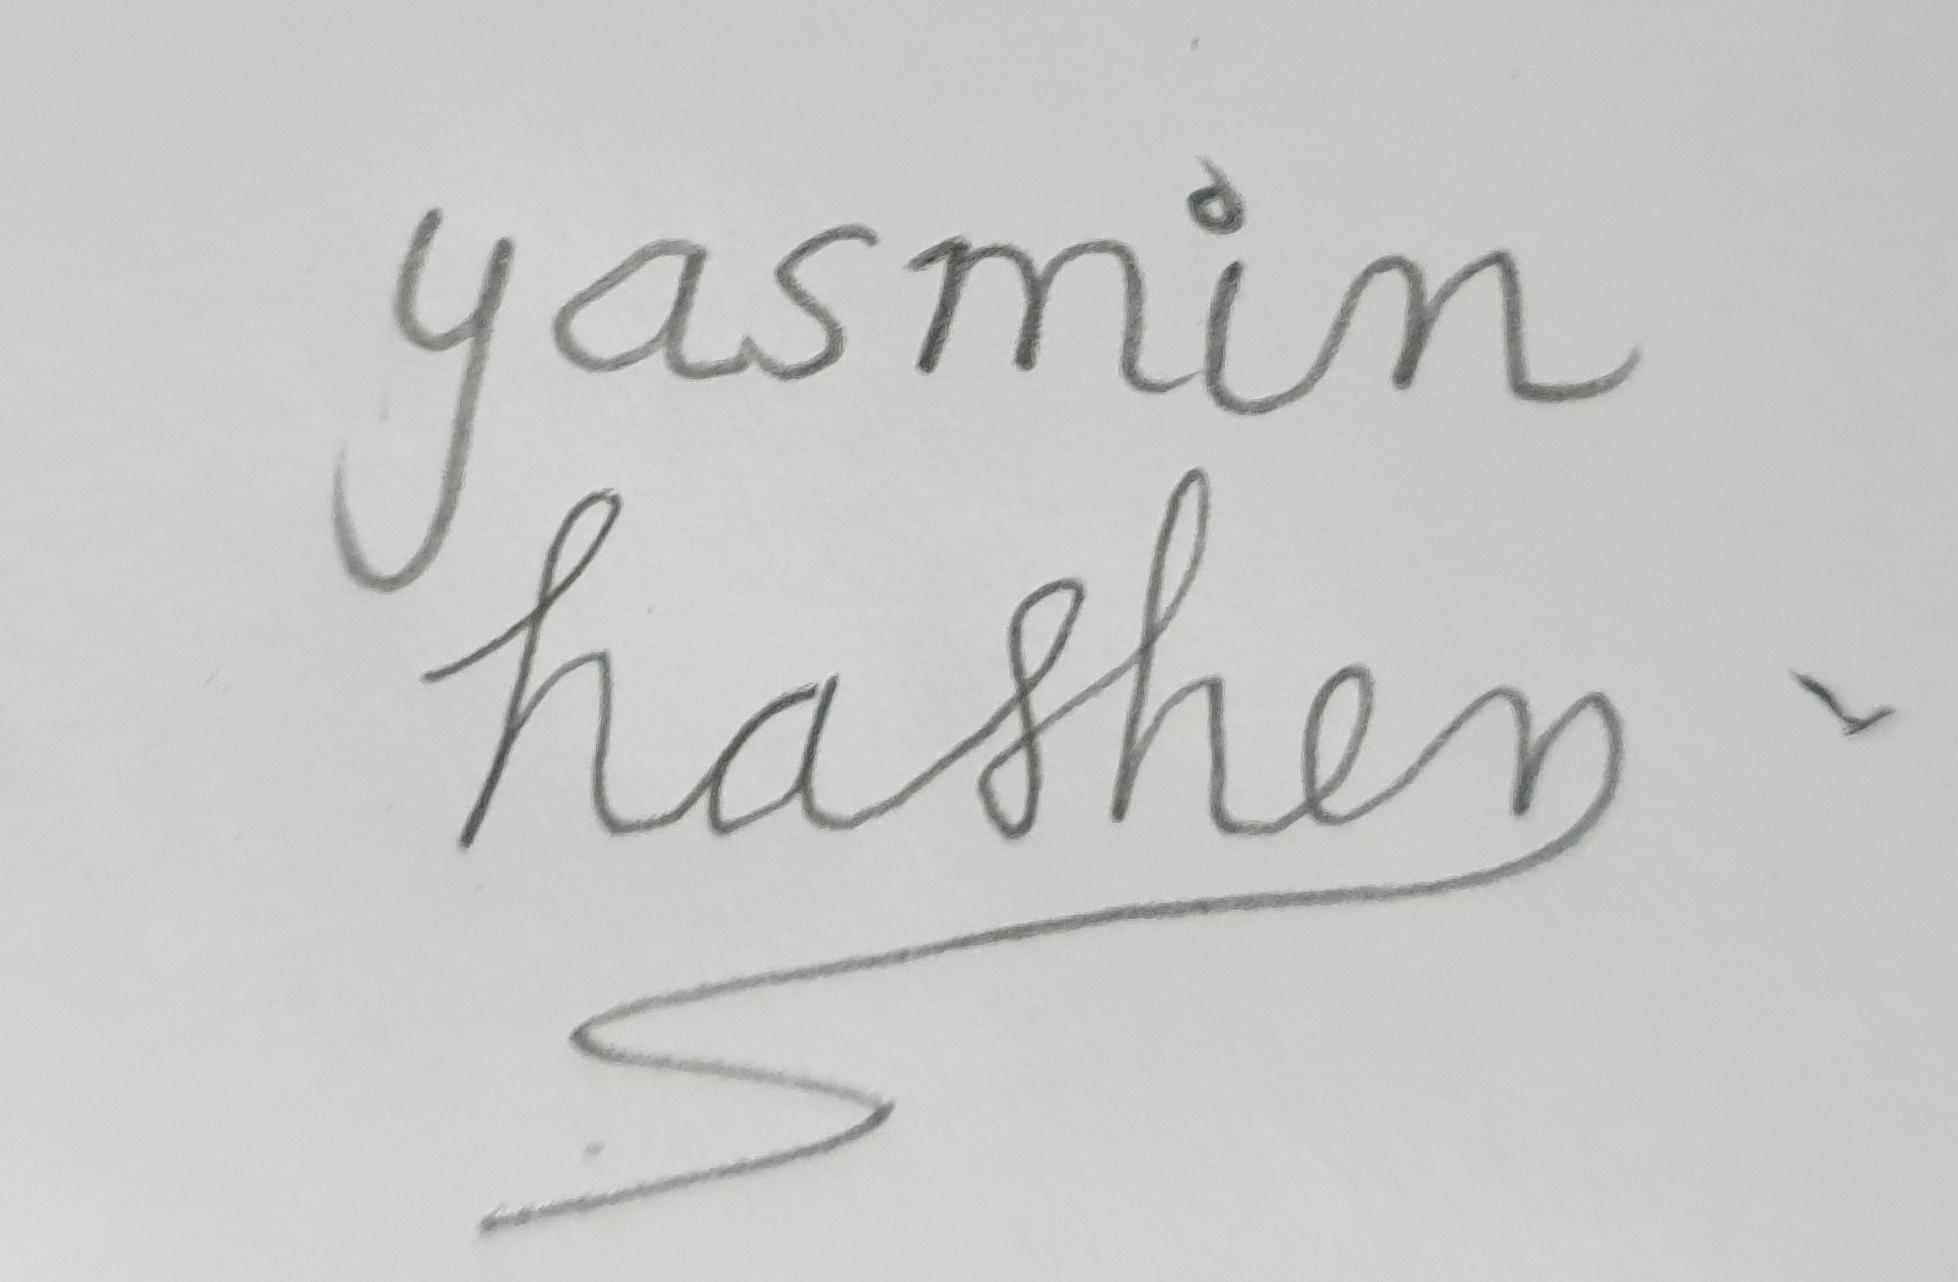 yasmin
hashen